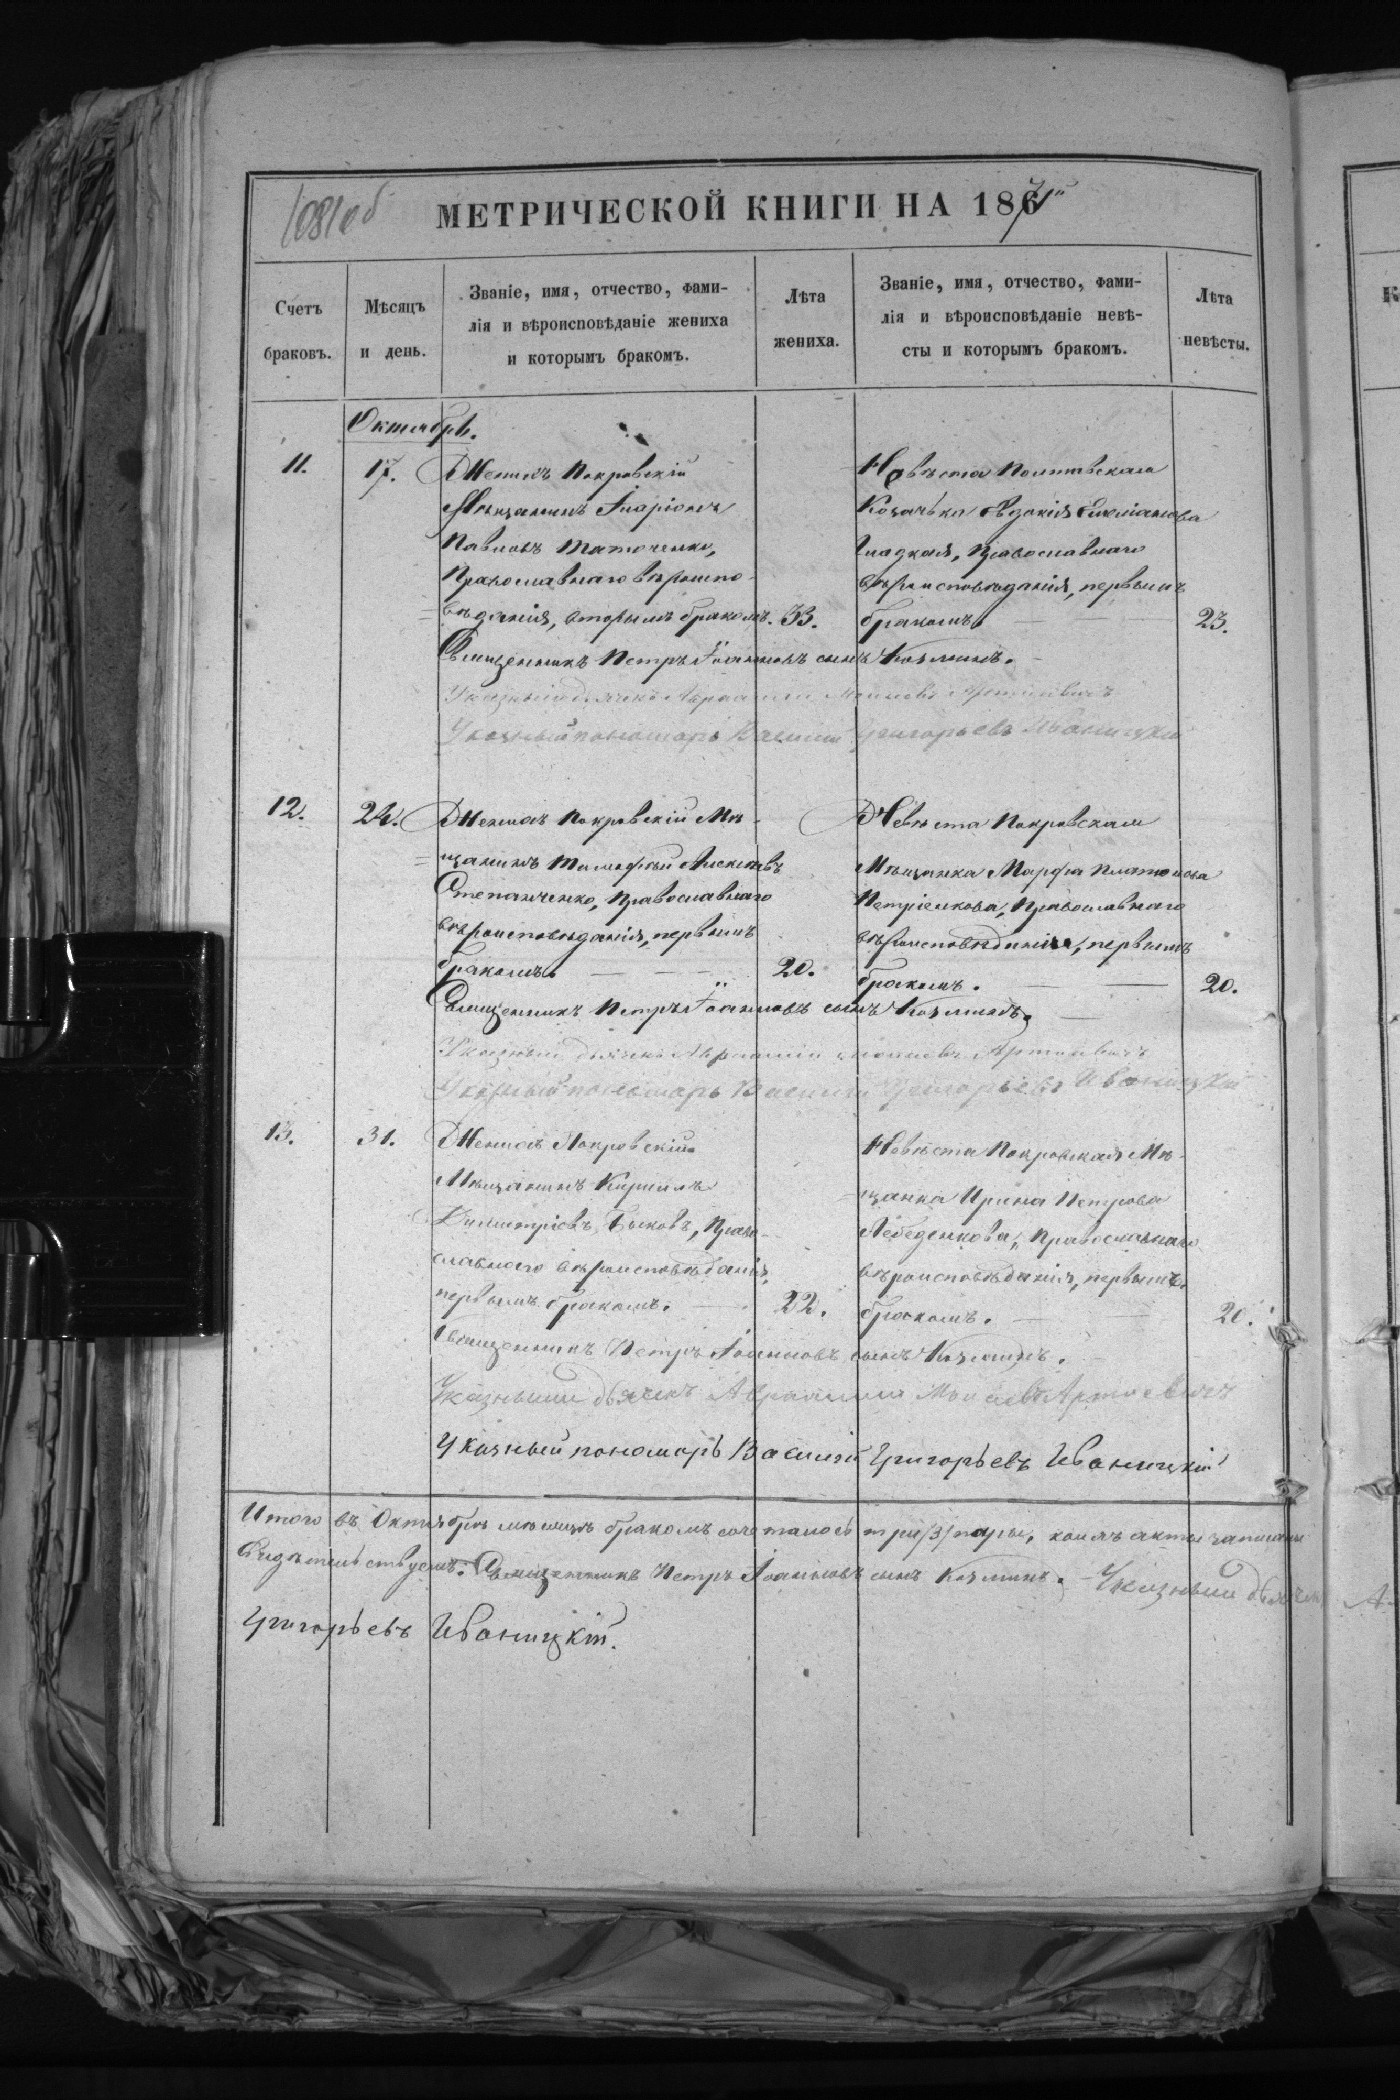 1081об
МЕТРИЧЕСКОЙ КНИГИ НА 1871й
Счетъ браковъ.
Мѣсяцъ и день.
Званіе, имя, отчество, фами-
лія и вѣроисповѣданіе жениха
и которымъ бракомъ.
Лѣта жениха.
Званіе, имя, отчество, фами-
лія и вѣроисповѣданіе невѣ-
сты и которымъ бракомъ.
Лѣта невѣсты.
Октябрь.
11.
17.
Женихъ Покровскій
Мѣщанинъ Іларіонъ
Павловъ
Православнаго вѣроиспо-
вѣданія, вторымъ бракомъ. 33.
Невѣста Полтавская
Козачька Евдокія Емеліанова
Гладкая, Православнаго
вѣроисповѣданія, первымъ
бракомъ. 23.
Священникъ Петръ Іоанновъ сынъ Козминъ.
Указный дьячекъ Авраамій
Указный пономарь Василій Григорьевъ Иваницкій
12.
24.
Женихъ Покровскій Мѣ-
щанинъ Тимофей
Степанченко, Православнаго
вѣроисповѣданія, первымъ
бракомъ. 20.
Невѣста Покровская
Мѣщанка Марфа Платонова
Петріенкова, Православнаго
вѣроисповѣданія, первымъ
бракомъ. 20.
Священникъ Петръ Іоанновъ сынъ Козминъ.
Указный дьячекъ Авраамій
Указный пономарь Василій Григорьевъ Иваницкій
13.
31.
Женихъ Покровскій
Мѣщанинъ Кириллъ
Димитріевъ Быковъ, Право-
славнаго вѣроисповѣданія,
первымъ бракомъ. 22.
Невѣста Покровская Мѣ-
щанка Ирина Петрова
Лебеденкова, Православнаго
вѣроисповѣданія, первымъ
бракомъ. 20.
Священникъ Петръ Іоанновъ сынъ Козминъ.
Указный дьячекъ Авраамій
Указный пономарь Василій Григорьевъ Иваницкій
Итого въ Октябрѣ мѣсяцѣ бракомъ сочеталось три /3/ пары, коихъ акты записаны
Свидѣтельствуемъ: Священникъ Петръ Іоанновъ сынъ Козминъ. Указный дьячекъ
Григорьевъ Иваницкій.